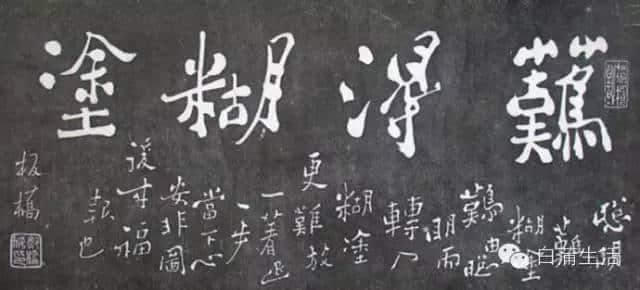 難得糊塗
聰明
難
糊塗
難由聰
明而
轉入
糊塗
更難放
一著退
一步
當下心
安非圖
後來福
報也
板橋
白蒲生活